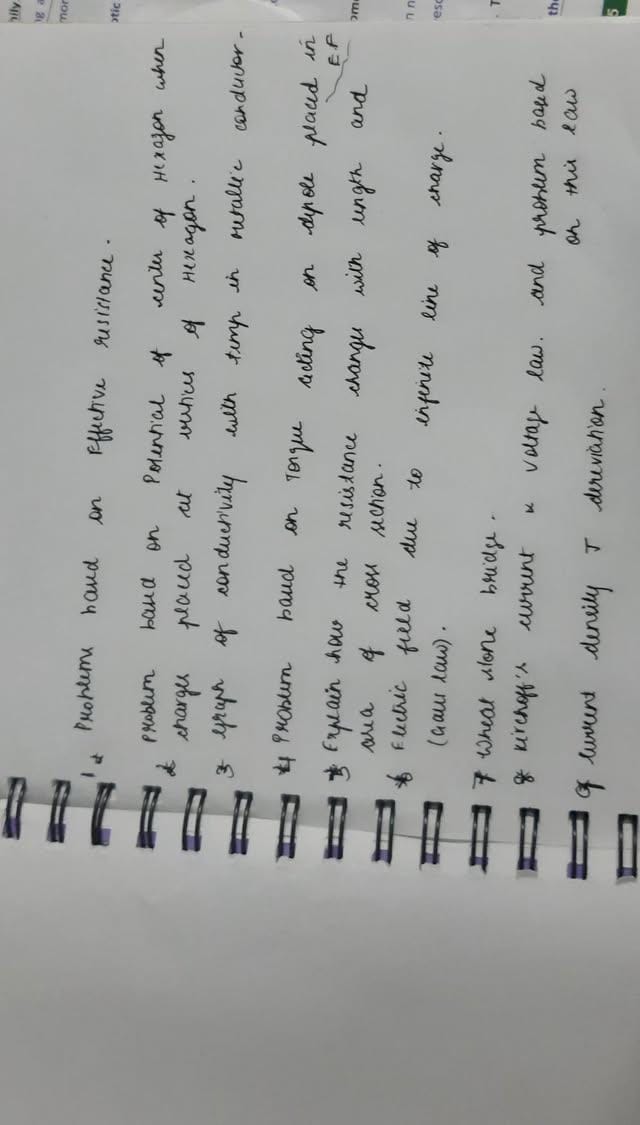 1 Problems based on Effective resistance.
2 Problem based on Potential of center of Hexagon when
charges placed at vertices of Hexagon.
3 graph of conductivity with temp in metallic conductor.
4 Problem based on Torque acting on dipole placed in
E.F
5 Explain how the resistance changes with length and
area of cross section.
6 Electric field due to infinite line of charge.
(Gauss law).
7 Wheat stone bridge.
8 Kirchoff's current & voltage law. and problem based
on this law
9 current density J dereviation.